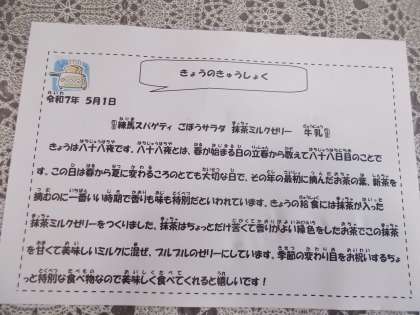 きょうのきゅうしょく
令和7年 5月1日
練馬スパゲティ ごぼうサラダ 抹茶ミルクゼリー 牛乳
きょうは八十八夜です。八十八夜とは、春が始まる日の立春から数えて八十八日目のことで
す。この日は春から夏に変わるころのとても大切な日で、その年の最初に摘んだお茶の葉、新茶を
摘むのに一番いい時期で香りも味も特別だといわれています。きょうの給食には抹茶が入った
抹茶ミルクゼリーをつくりました。抹茶はちょっとだけ苦くて香りがよい緑色をしたお茶でこの抹茶
を甘くて美味しいミルクに混ぜ、プルプルのゼリーにしています。季節の変わり目をお祝いするちょ
っと特別な食べ物なので美味しく食べてくれると嬉しいです！